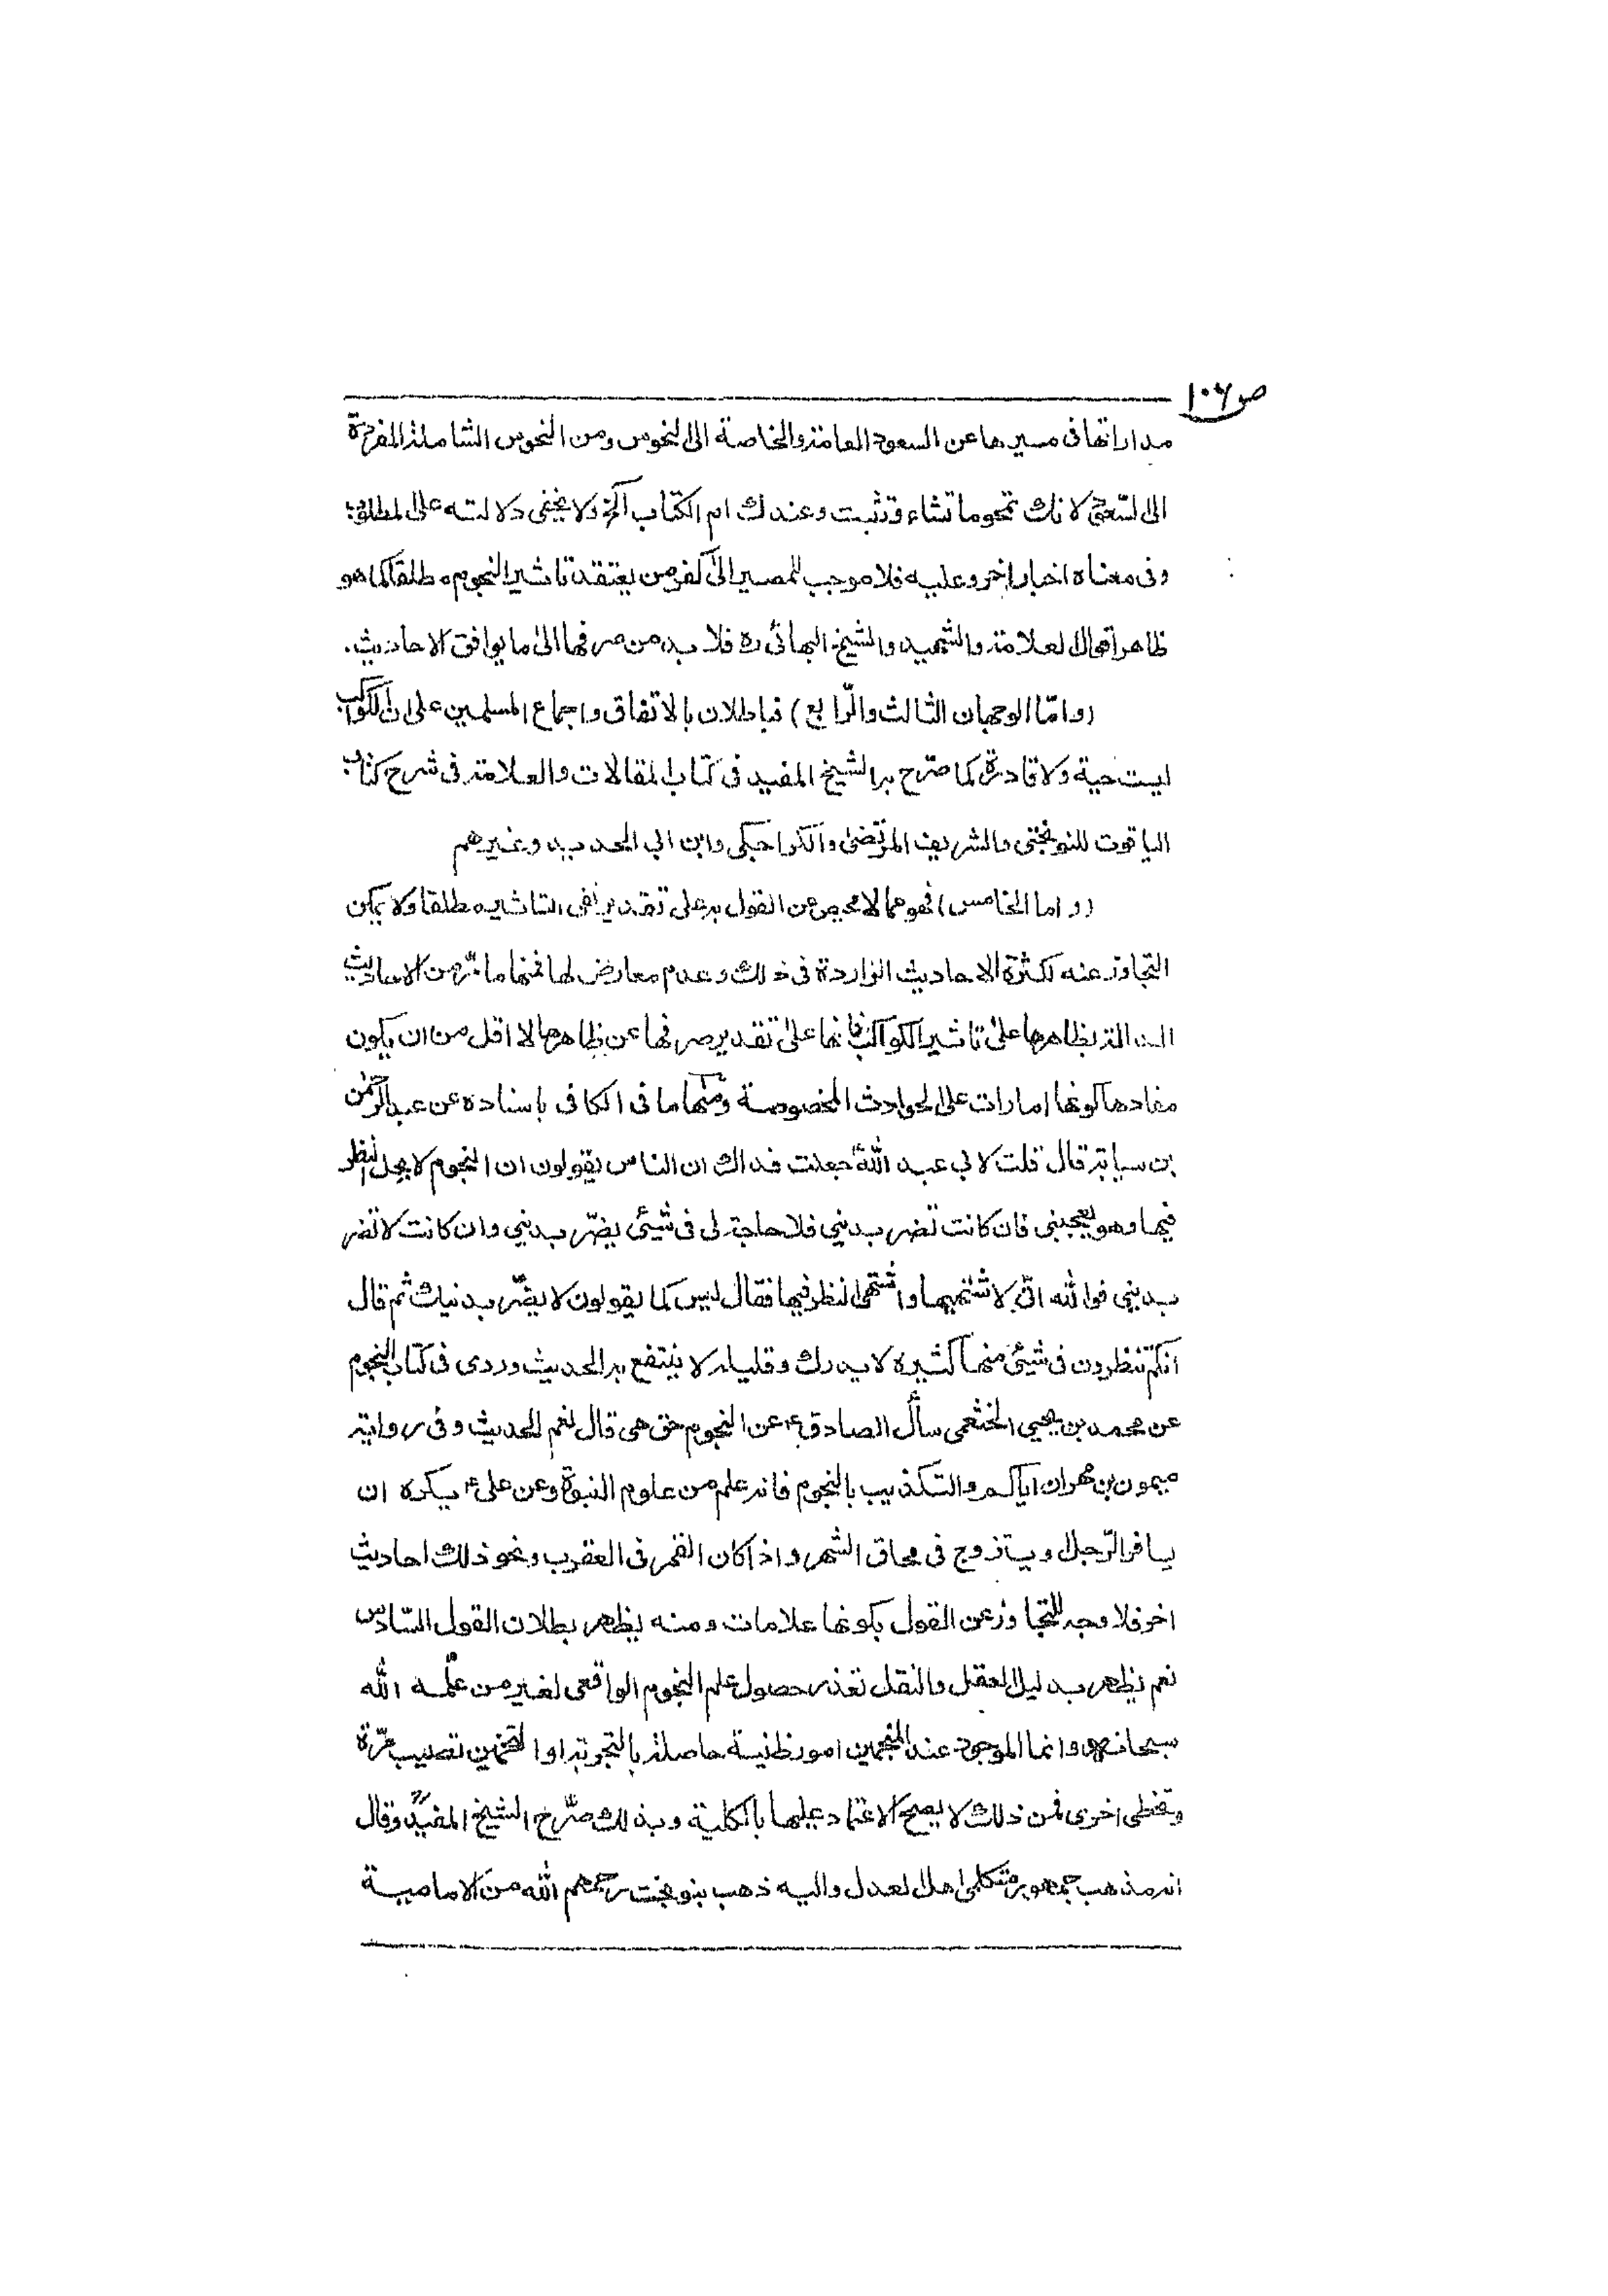 ص ١٠٦
مداراتها فى مسيرها عن السعود العامة والخاصة الى النحوس ومن النحوس الشاملة المفردة
الى السّعود لانك تمحوما تشاء وتثبت وعندك ام الكتاب آلخ ولا يخفى دلالته على المطلوب
وفى معناه اخبار اخر وعليه فلا موجب للمصير الى كفر من يعتقد تاثير النجوم مطلقا كما هو
ظاهر اقوال العلامة والشهيد والشيخ البهائى ره فلا بد من صرفها الى ما يوافق الاحاديث.
(وامّا الوجهان الثالث والرّابع) فباطلان بالاتفاق واجماع المسلمين على ان الكواكب
ليست حية ولا قادرة كما صرّح به الشيخ المفيد فى كتاب المقالات والعلامة فى شرح كتاب
الياقوت للنوبختى والشريف المرتضى والكراجكى وابن ابى الحديد وغيرهم
(واما الخامس) فهو مما لا محيص عن القول به على تقدير نفى التاثير مطلقا ولا يمكن
التجاوز عنه لكثرة الاحاديث الواردة فى ذلك وعدم معارض لها فمنها ما مرّ من الاحاديث
الدالة بظاهرها على تاثير الكواكب فانها على تقدير صرفها عن ظاهرها لا اقل من ان يكون
مفادها كونها امارات على الحوادث المخصوصة ومنها ما فى الكافى باسناده عن عبد الرحمٰن
بن سيابة قال قلت لابى عبد الله ع جعلت فداك ان الناس يقولون ان النجوم لا يحل النظر
فيها وهو يعجبنى فان كانت تضر بدينى فلا حاجة لى فى شيئ يضرّ بدينى وان كانت لا تضر
بدينى فوالله انّى لاشتهيها واشتهى النظر فيها فقال ليس كما يقولون لا يضرّ بدنيك ثم قال
انكم تنظرون فى شيئ منها كثيره لا يدرك وقليله لا ينتفع به الحديث وردى فى كتاب النجوم
عن محمد بن يحيى الخثعمى سأل الصادق ع عن النجوم حق هى قال نعم الحديث وفى رواية
ميمون بن مهران اياكم والتكذيب بالنجوم فانه علم من علوم النبوة وعن على ع يكره ان
يسافر الرّجل ويتزوج فى محاق الشهر واذا كان القمر فى العقرب ونحو ذلك احاديث
اخر فلا وجه للتجاوز عن القول بكونها علامات ومنه يظهر بطلان القول السّادس
نعم يظهر بدليل العقل والنقل تعذر حصول علم النجوم الواقعى لغير من علّمه الله
سبحانه وانما الموجود عند المنجمين امور ظنية حاصلة بالتجربة او التخمين تصيب مرّة
وتخطى اخرى فمن ذلك لا يصح الاعتماد عليها بالكلية وبذلك صرّح الشيخ المفيد وقال
انه مذهب جمهور متكلمى اهل العدل واليه ذهب بنو نوبخت رحمهم الله من الامامية